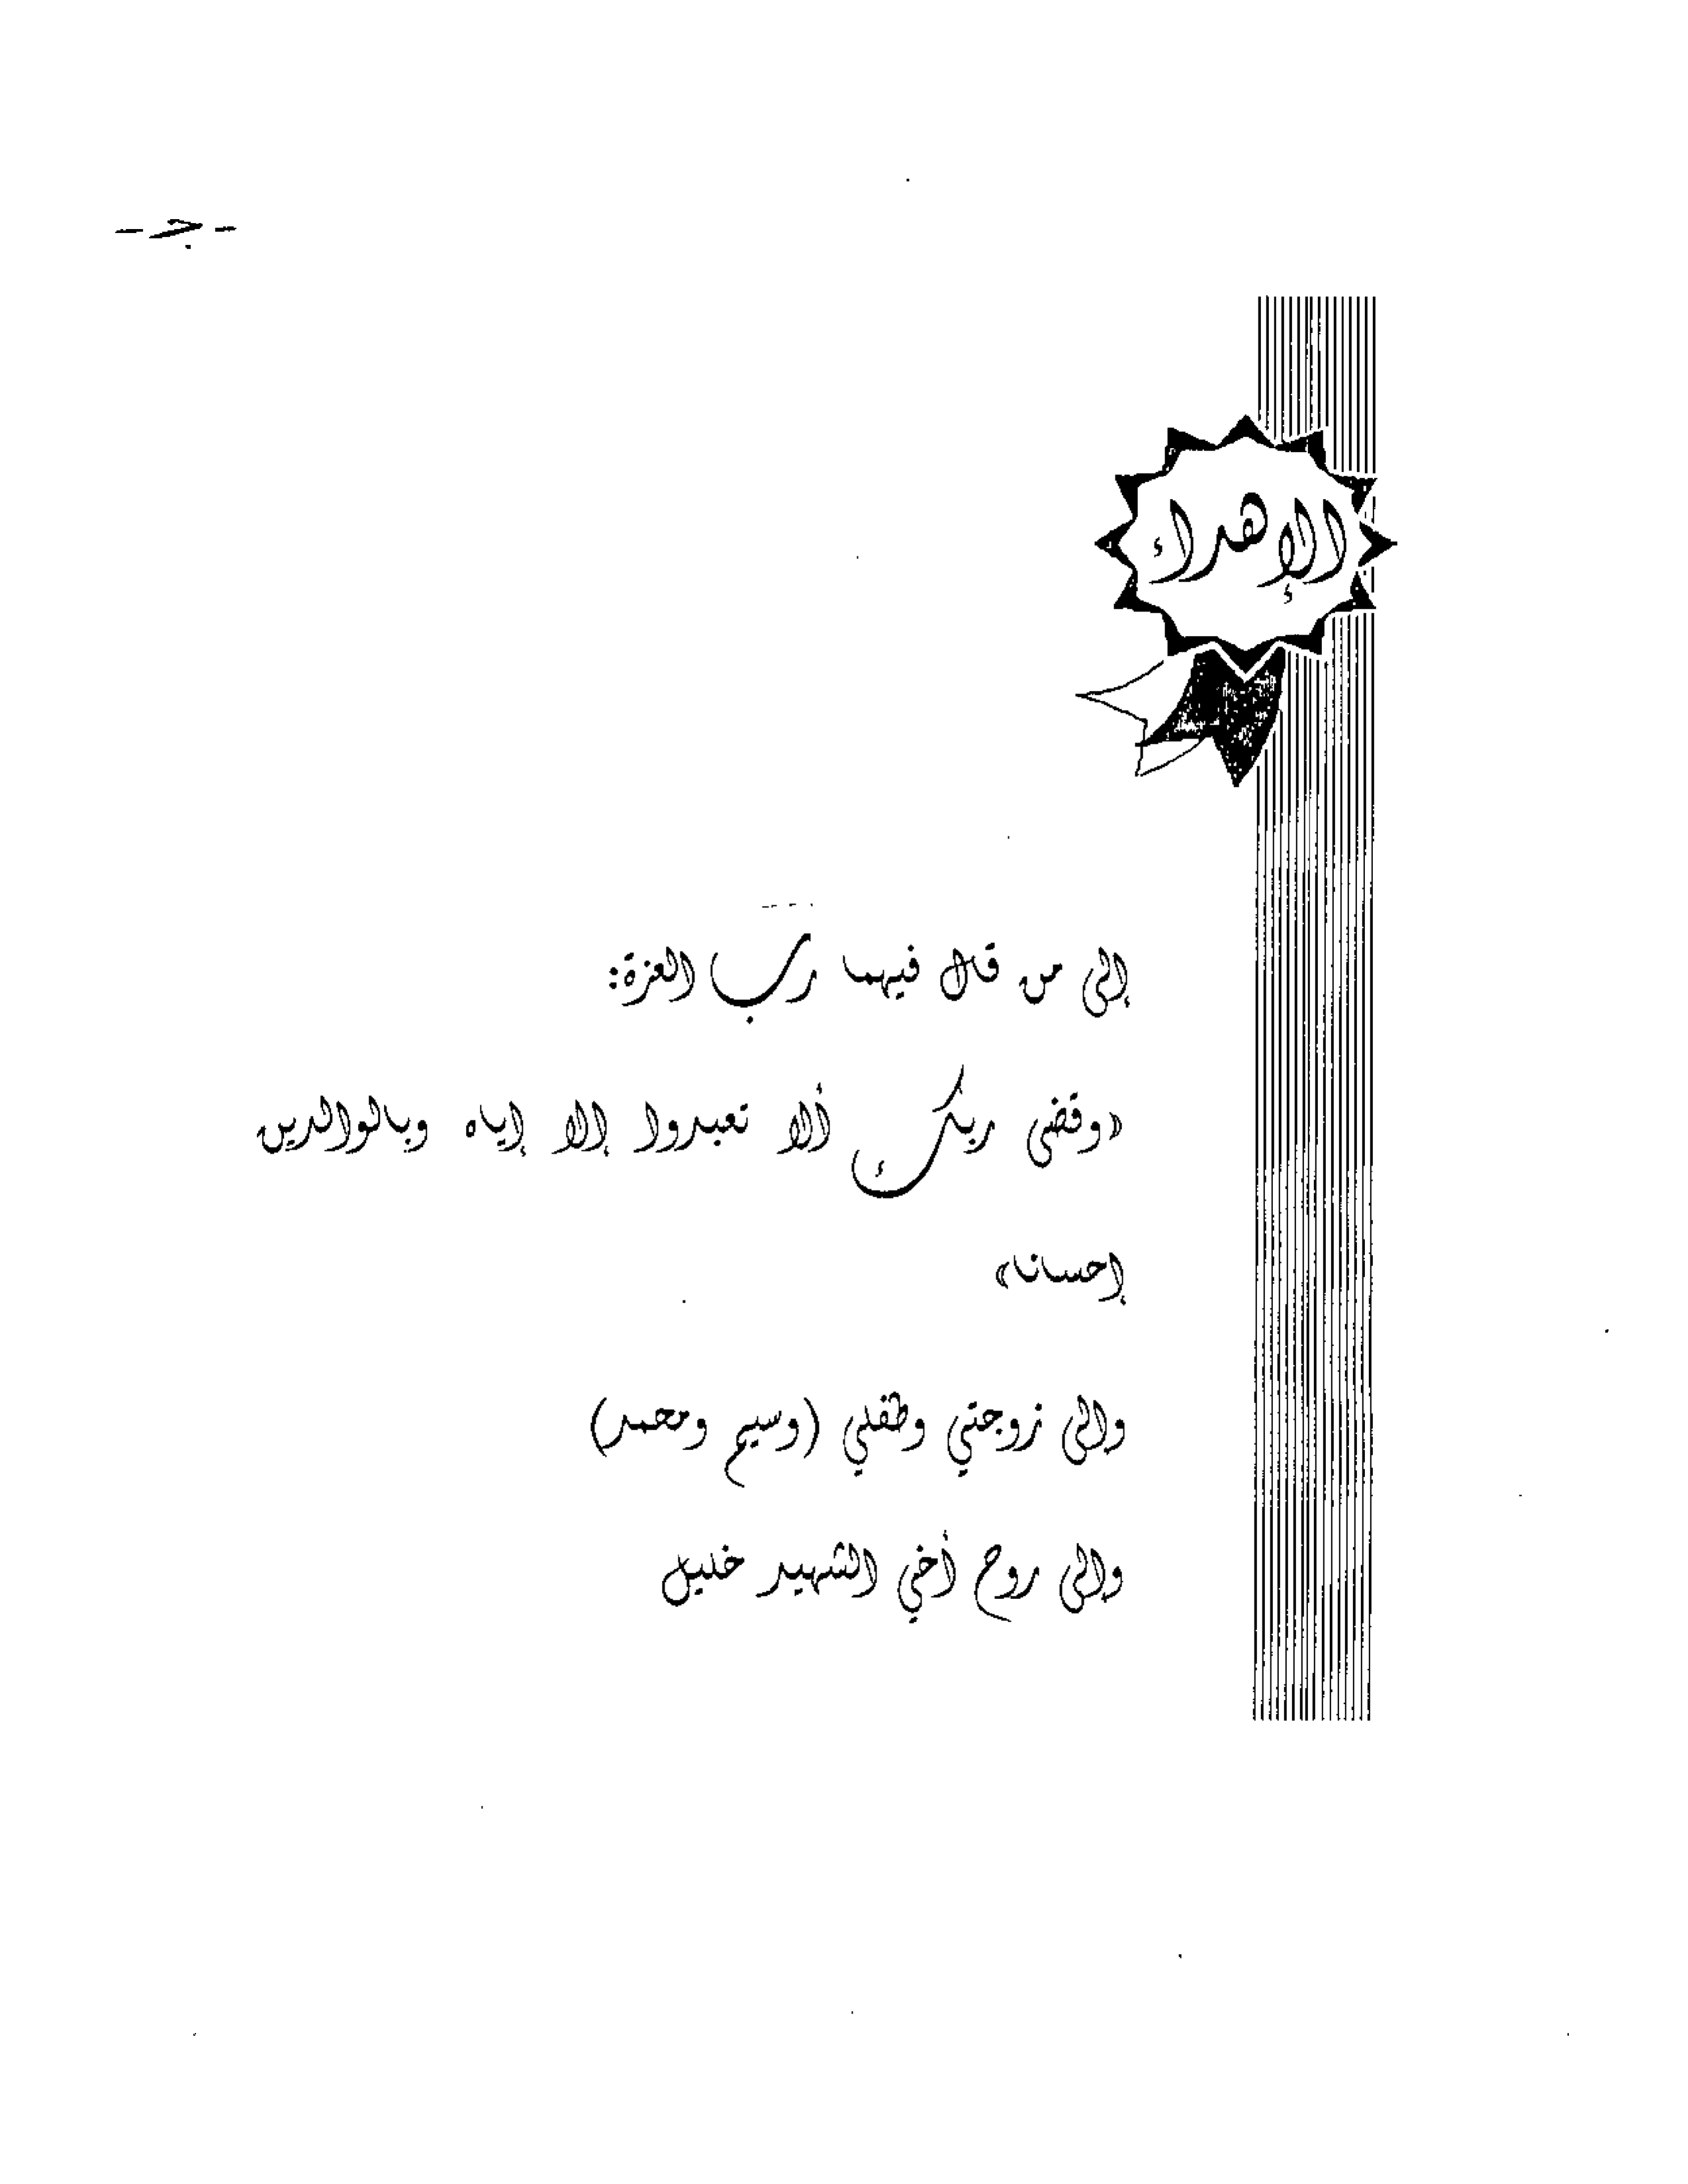 - جـ -
الإهداء
إلى من قال فيهما رب العزة:
«وقضى ربك ألا تعبدوا إلا إياه وبالوالدين
إحسانا»
وإلى زوجتي وطفلي (وسيم ومحمد)
وإلى روح أخي الشهيد خليل